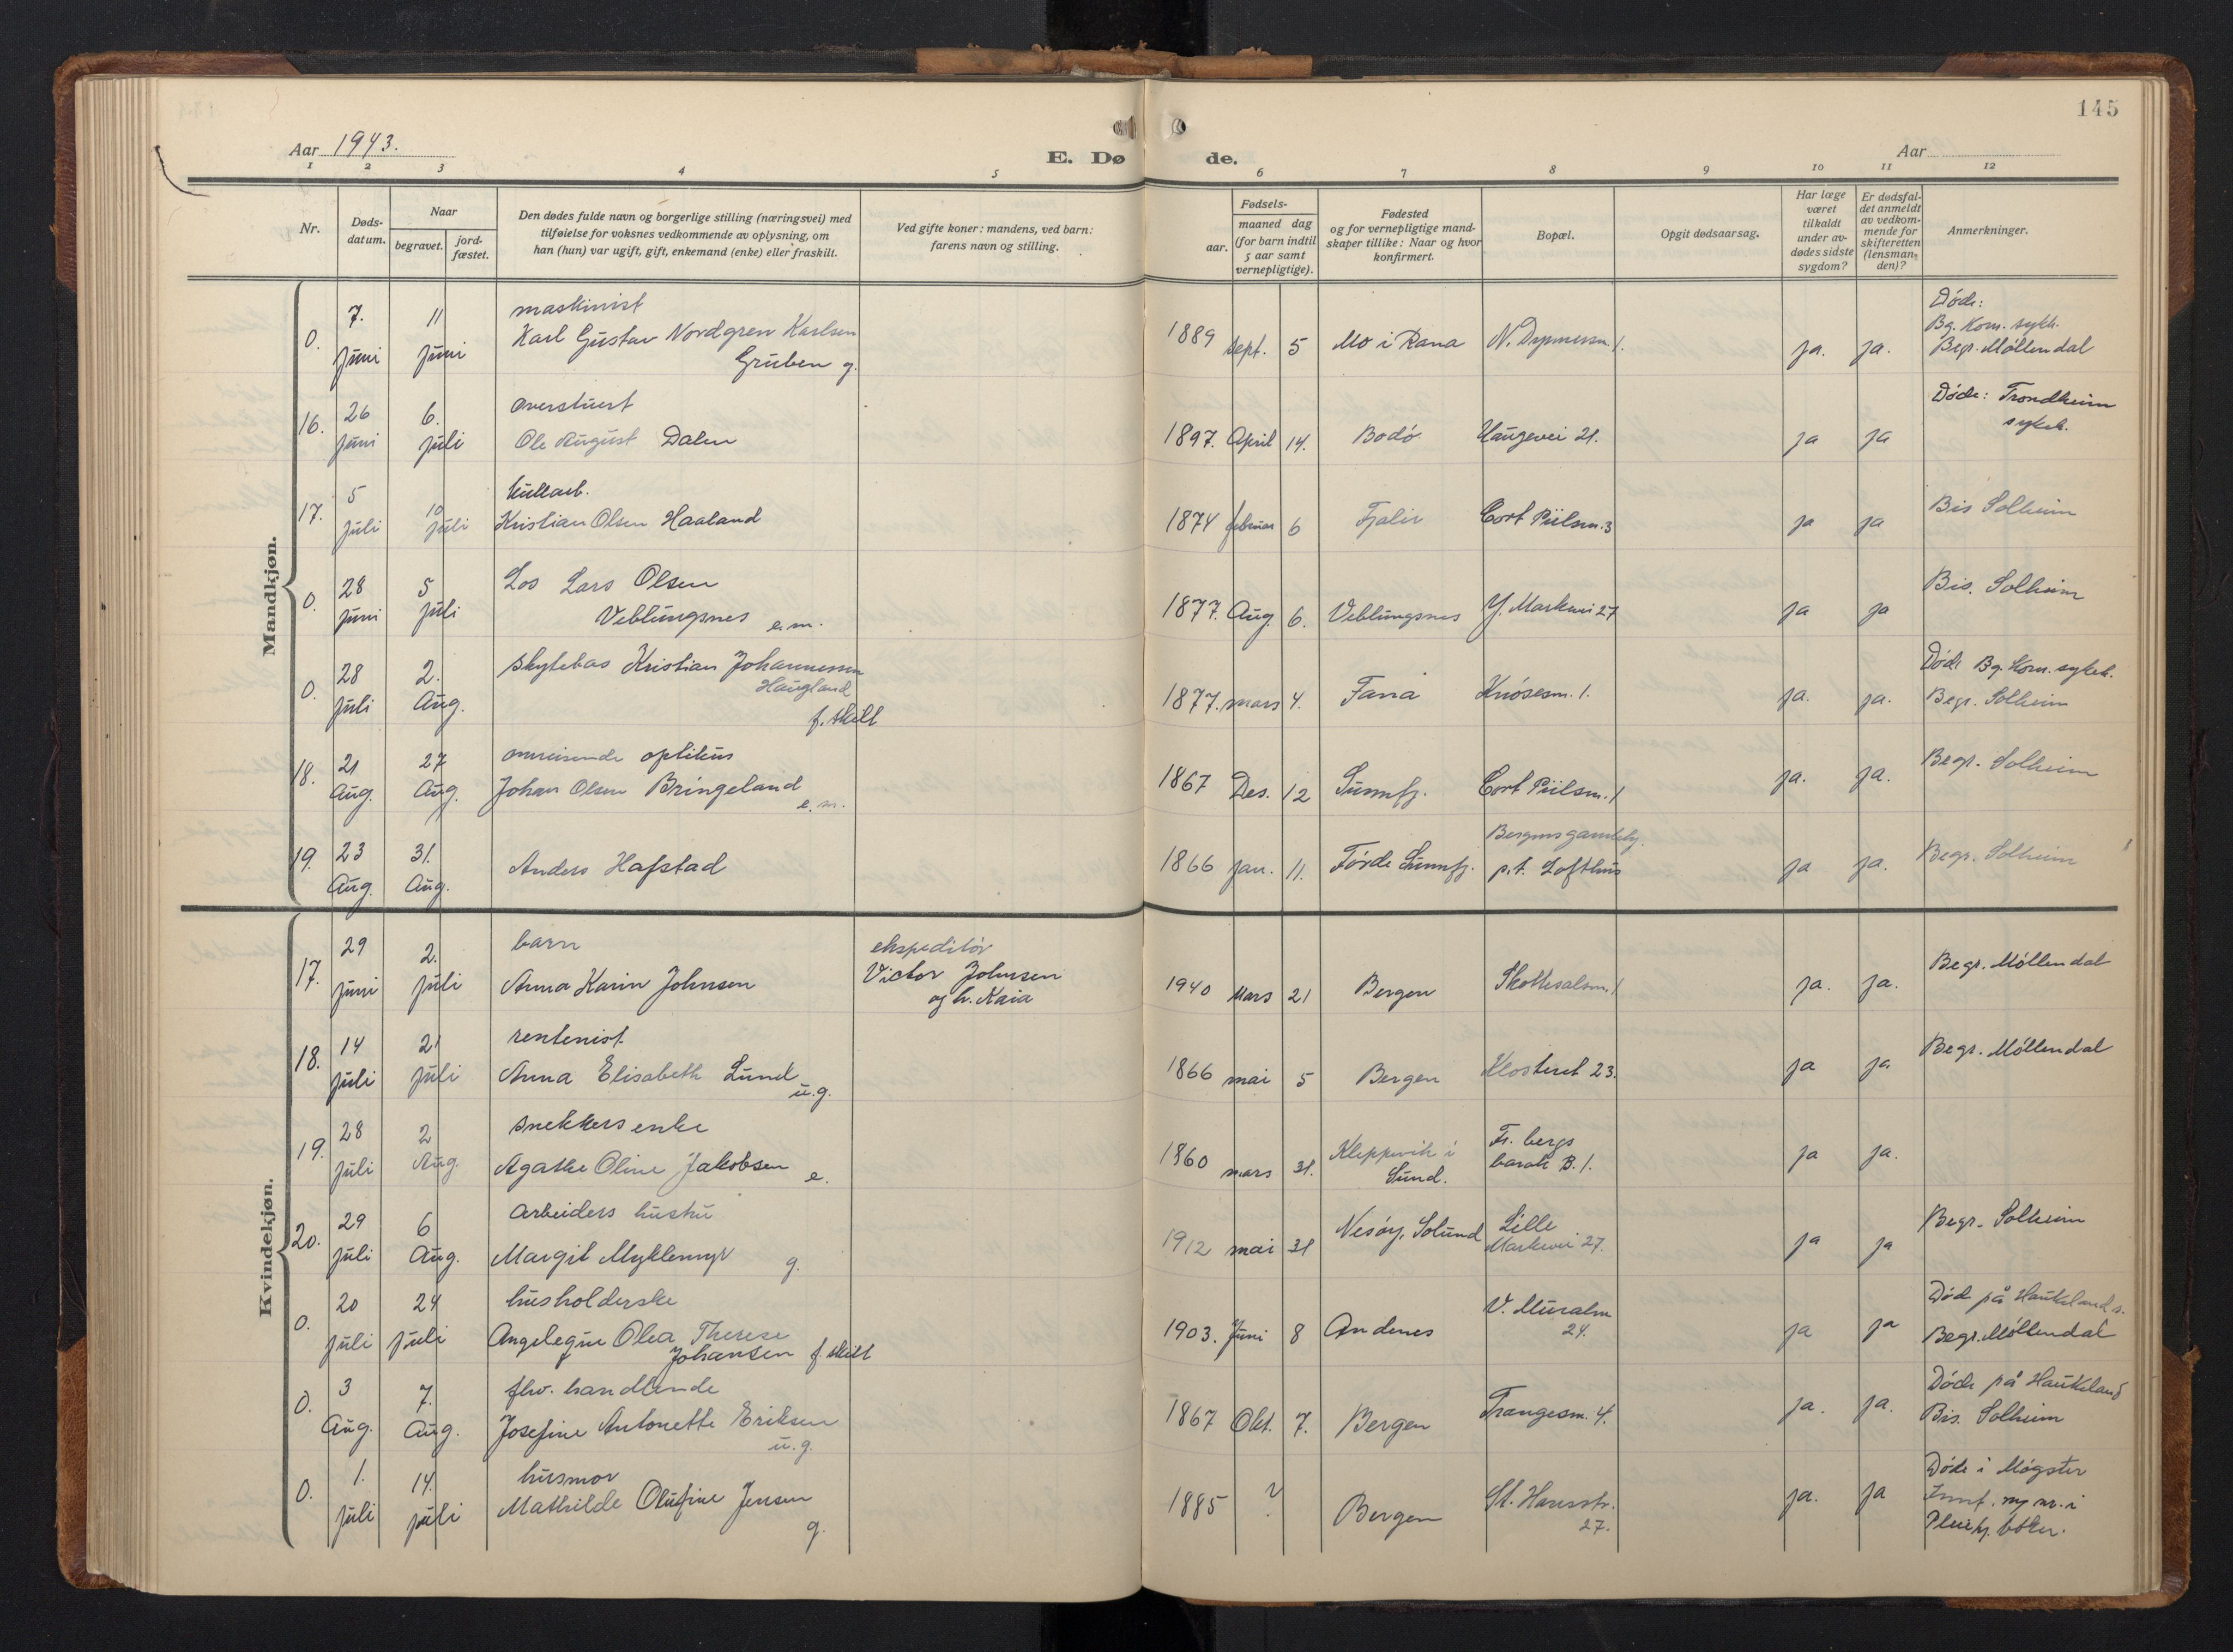 145
Aar 1943.
E. Dø
de.
Aar
1 2 3 4 5
6 7 8 9 10 11 12
Nr.
Døds-
datum.
Naar
begravet.
jord-
fæstet.
Den dødes fulde navn og borgerlige stilling (næringsvei) med
tilføielse for voksnes vedkommende av oplysning, om
han (hun) var ugift, gift, enkemand (enke) eller fraskilt.
Ved gifte koner: mandens, ved barn:
farens navn og stilling.
Fødsels-
aar.
maaned dag
(for barn indtil
5 aar samt
vernepligtige).
Fødested
og for vernepligtige mand-
skaper tillike: Naar og hvor
konfirmert.
Bopæl.
Opgit dødsaarsag.
Har læge
været
tilkaldt
under av-
dødes sidste
sygdom?
Er dødsfal-
det anmeldt
av vedkom-
mende for
skifteretten
(lensman-
den)?
Anmerkninger.
Mandkjøn.
0. 7. Juni 11 Juni
maskinist
Karl Gustav Nordgren Karlsen
Gruben g.
1889 Sept. 5 Mo i Rana
ja. ja.
Døde:
Bg. Kom. sykh.
Begr. Møllendal
16. 26 Juni 6. juli
overstuert
Ole August Dalen
1897. April 14. Bodø Haugevei 21.
ja ja
Døde: Trondheim
sykeh.
17. 5 Juli 10 Juli
Kullarb.
Kristian Olsen Haaland
1874 februar 6 Fjaler Cort Piilsm. 3
ja ja
Bis Solheim
0. 28 Juni 5 Juli
Los Lars Olsen
Veblungsnes e.m.
1877. Aug. 6. Veblungsnes Y. Markvei 27
ja ja
Bis. Solheim
0. 28 Juli 2. Aug.
skytebas Kristian Johannessen
Haugland
f. skilt
1877. mars 4. Fana Knøsesm. 1.
ja. ja.
Døde Bg. Kom. sykeh.
Begr. Solheim
18. 21 Aug. 27 Aug.
omreisende optikus
Johan Olsen Bringeland
e.m.
1867 Des. 12 Sunnfj. Cort Piilsm. 1
ja. ja.
Begr. Solheim
19. 23 Aug. 31. Aug.
Anders Hafstad
1866 jan. 11. Førde Sunnfj.
Bergens gamleby.
p.t. Lofthus
ja ja.
Begr. Solheim
Kvindekjøn.
17. 29 Juni 2. juli
barn
Anna Karin Johnsen
ekspeditør
Victor Johnsen
og h. Kaia
1940 Mars 21 Bergen Skottesalsm. 1
ja. ja.
Begr. Møllendal
18. 14 Juli 21 Juli
rentenist
Anna Elisabeth Lund
u.g.
1866 mai 5 Bergen Klosteret 23.
ja ja
Begr. Møllendal
19. 28 Juli 2 Aug.
snekkers enke
Agathe Oline Jakobsen e.
1860 mars 31. Kleppevik i
Sund.
Fr. bergs
barak B. 1.
ja ja.
20. 29 Juli 6 Aug.
Arbeiders hustru
Margit Myklemyr g.
1912 mai 31 Nesøy, Solund
Lille
Markevei 27.
ja ja
Begr. Solheim
0. 20 Juli 24 Juli
husholderske
Angelegue Olea Therese
Johansen f. skilt
1903. Juni 8 Andenes
V. Muralm
24.
ja ja
Død på Haukeland s.
Begr. Møllendal
0. 3 Aug. 7. Aug.
fhv. handlende
Josefine Antonette Eriksen
u.g.
1867 Okt. 7. Bergen Trangesm. 4.
ja. ja.
Døde på Haukeland
Bis. Solheim
0. 1. Juli 14. juli
husmor
Mathilde Olufine Jensen
g.
1885 ? Bergen
St. Hansstr.
27.
ja. ja
Døde i Møgster